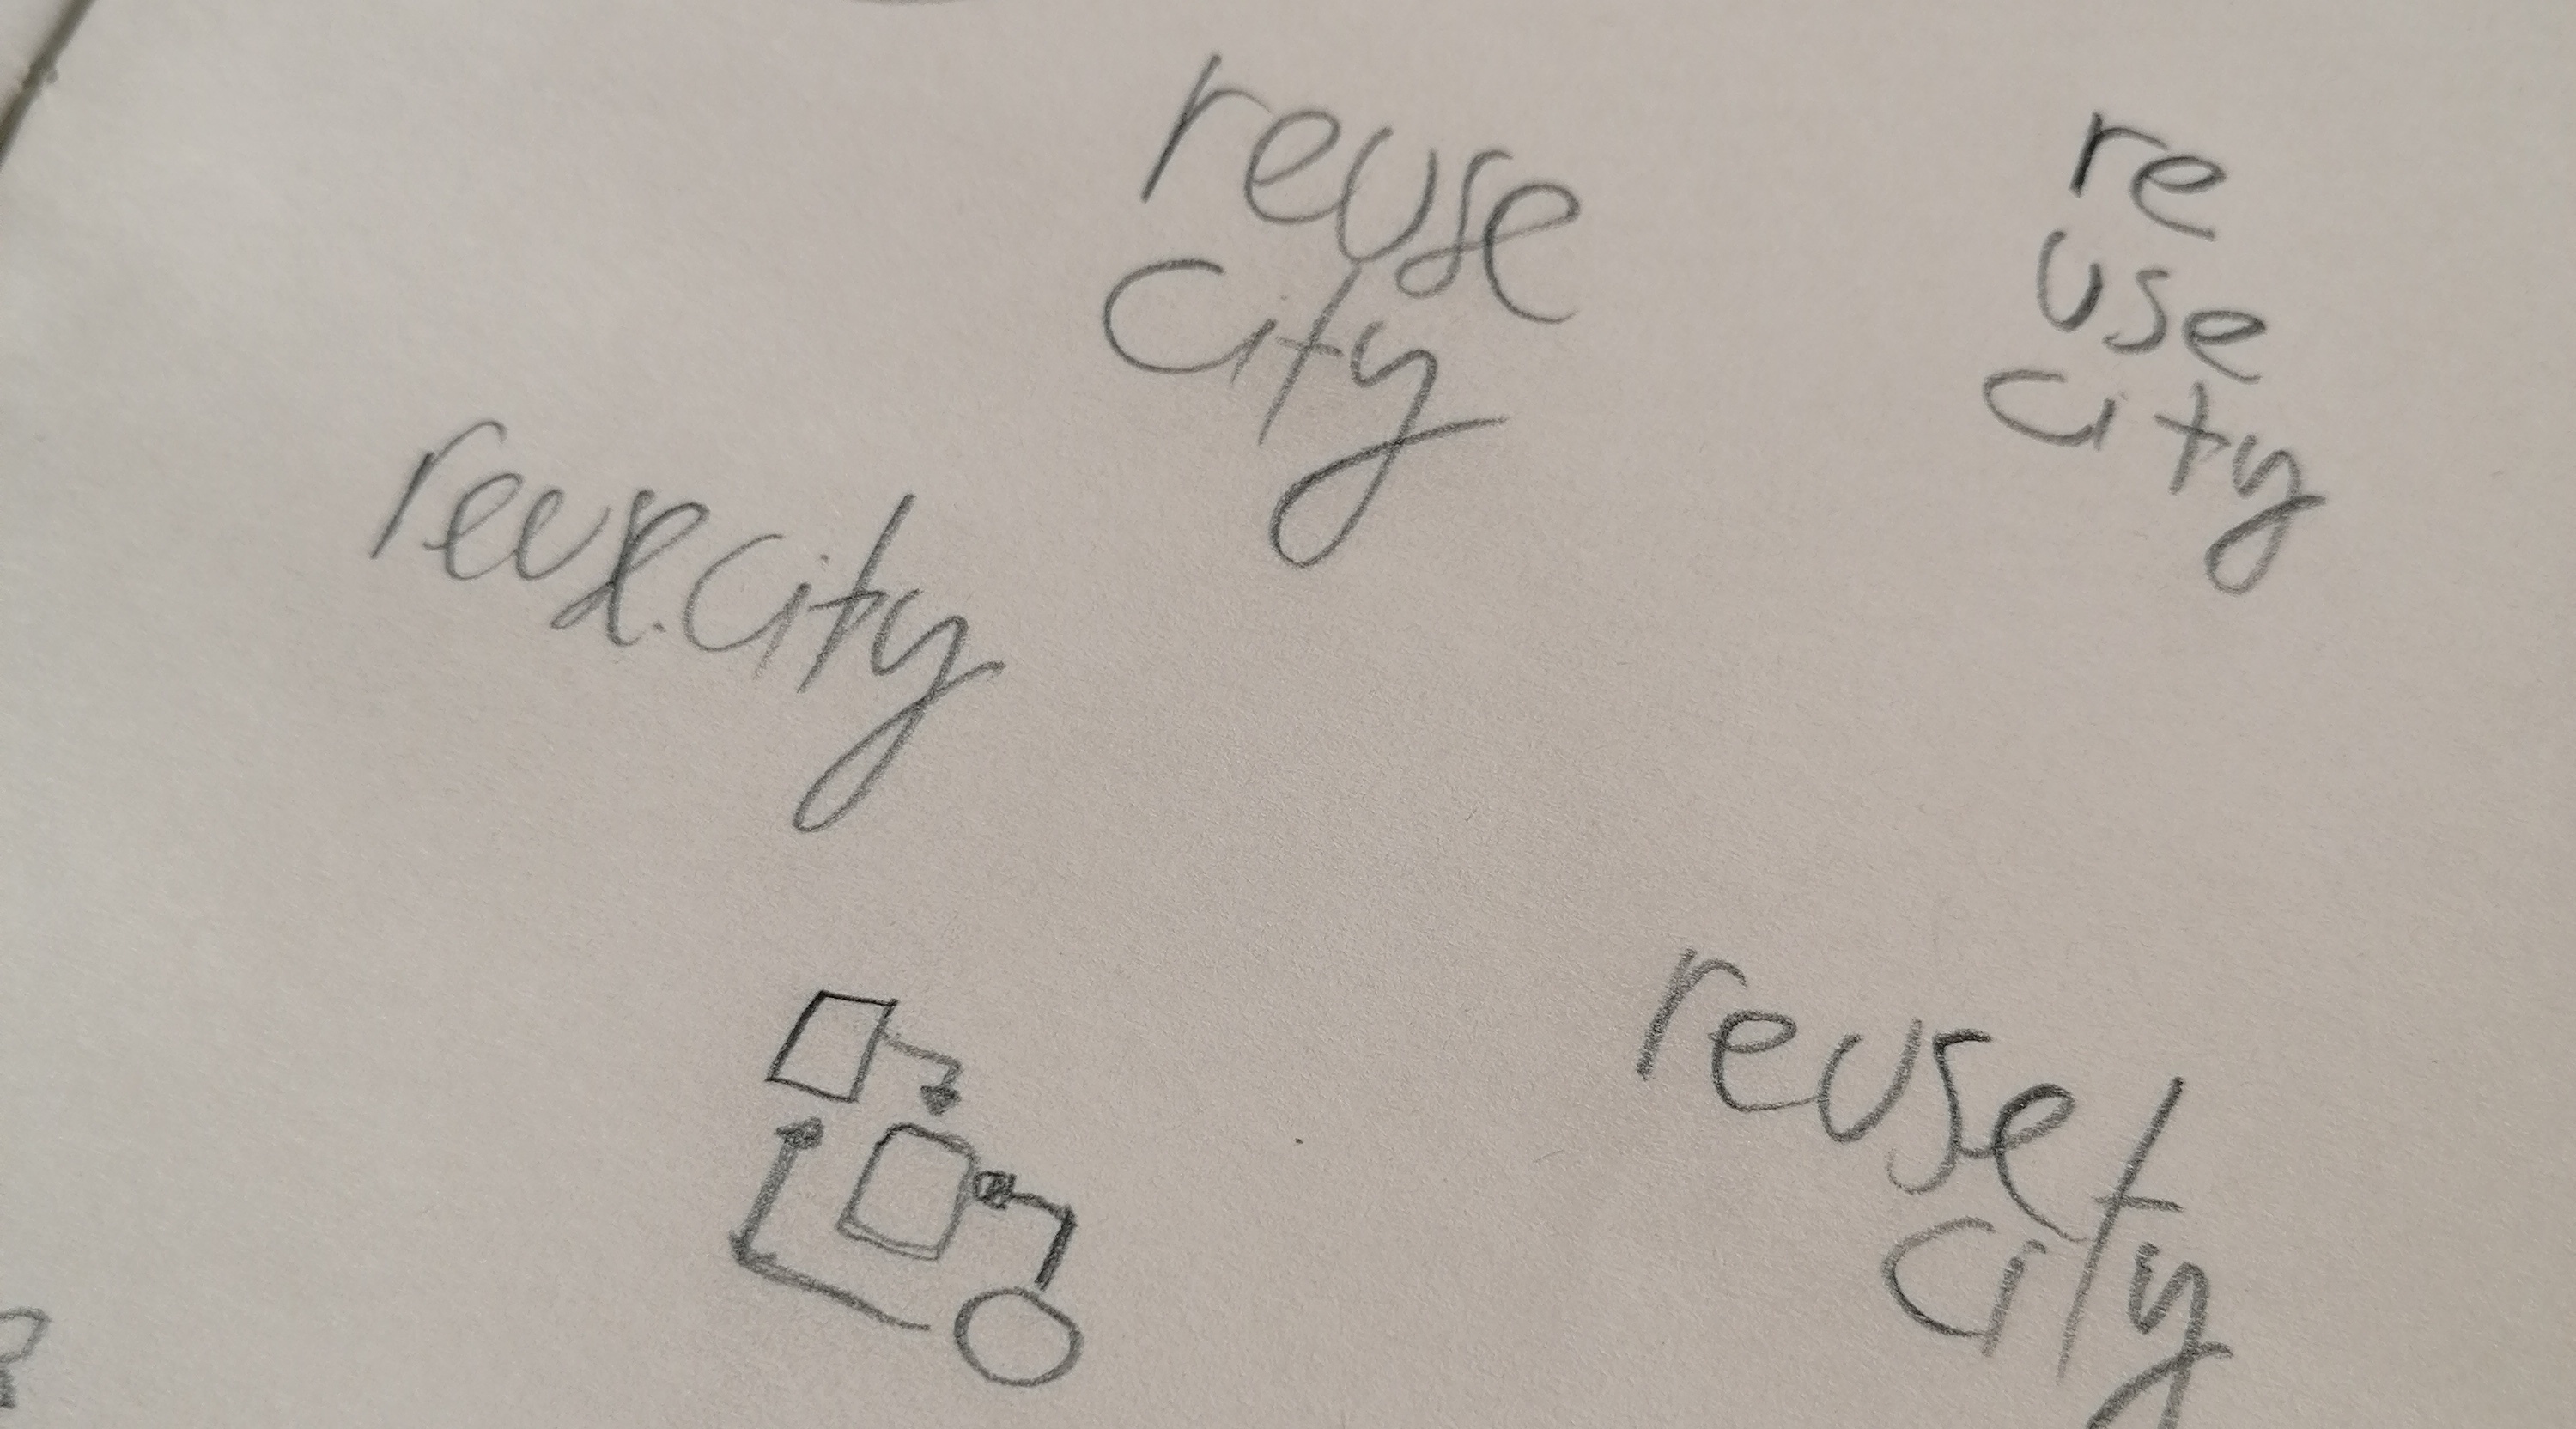 reuse
city
re
use
city
reuse.city
reuse
city